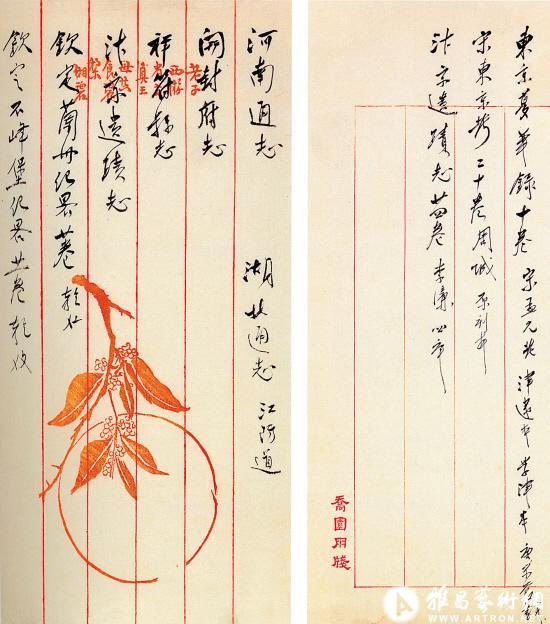 東京夢華錄十卷 宋孟元老 津逮本 學津本
宋東京考 二十卷 周城 原刊本
汴京遺蹟志 廿四卷 李濂
喬園用牋
河南通志 湖北通志 江防道
開封府志
祥符縣志
汴京遺蹟志
欽定蘭州紀畧
欽定石峰堡紀畧 廿卷
雅昌藝術網
WWW.ARTRON.NET